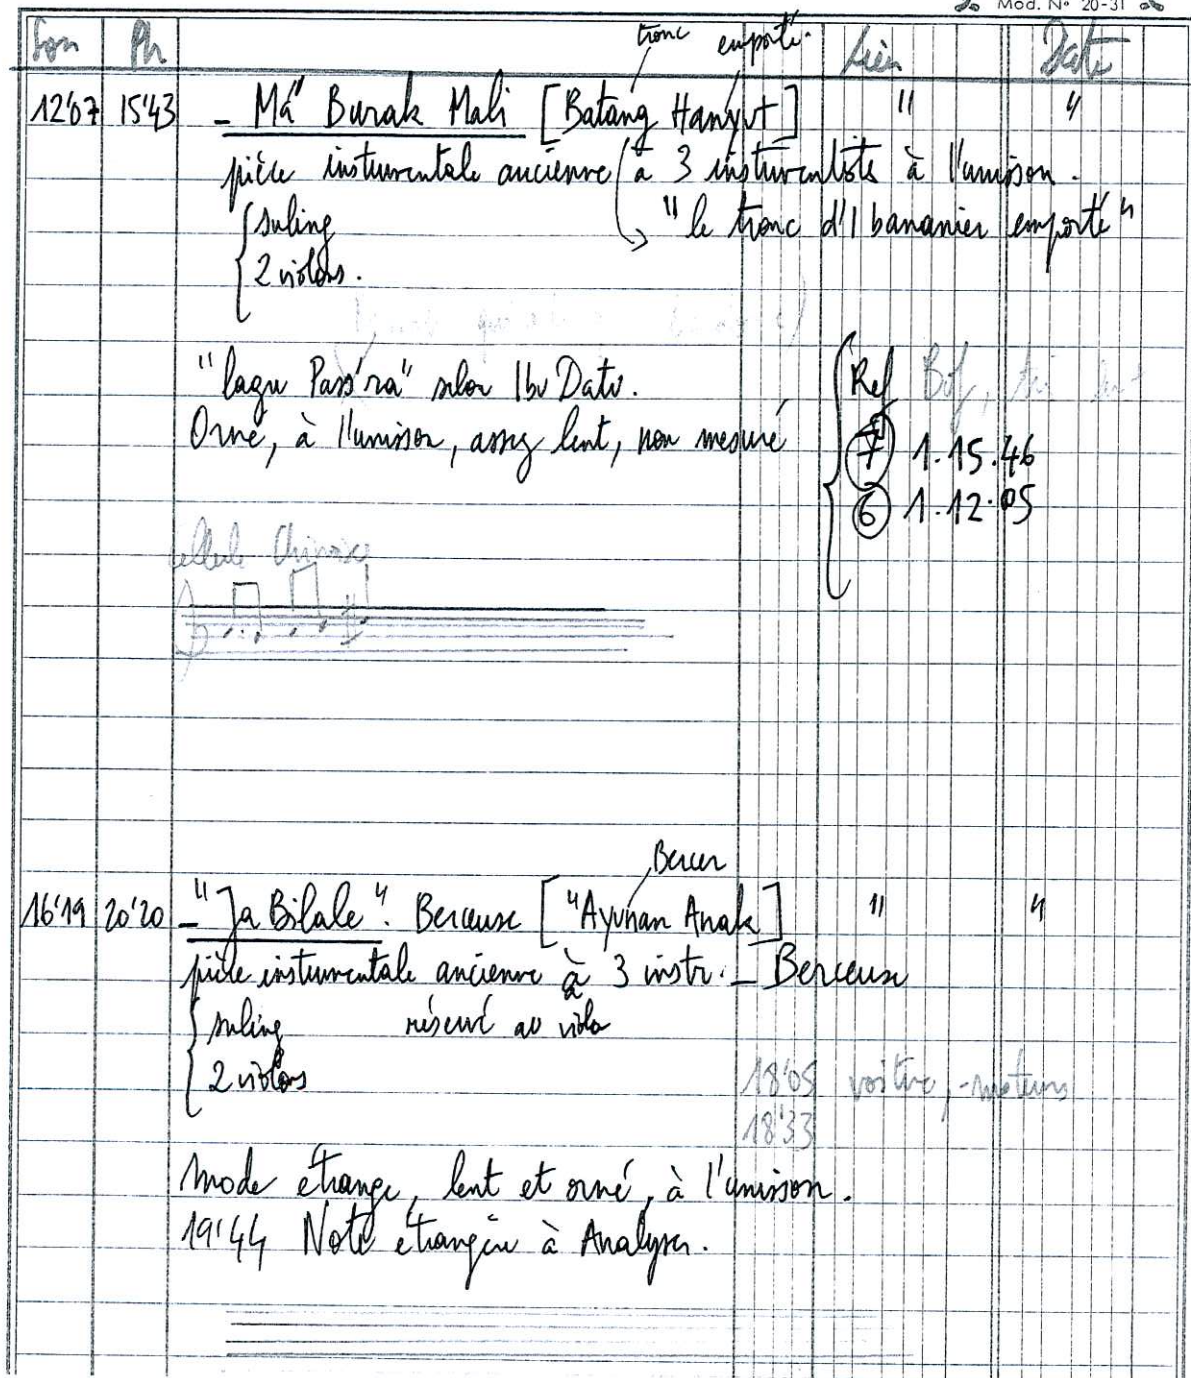 Mod. N° 20-31
Son Ph Lieu Date
tronc emporté.
12'07 15'43 - Má" Burak Mali [Batang Hanyut] " "
pièce instrumentale ancienne à 3 instrumentists à l'unisson.
{suling "le tronc d'1 bananier emporté"
2 violons.
"lagu Pass'ra" selon Ibu Datu.
Orné, à l'unisson, assez lent, non mesuré
Ref
7 1.15.46
6 1.12.05
cellule Chinoise
Bercer
16'19 20'20 - "Ja Bilale". Berceuse ["Ayunan Anak] " "
pièce instrumentale ancienne à 3 instr. - Berceuse
{suling réservé au viola
2 violons
18'05 voiture, -moteurs
18'33
Mode étrange, lent et orné, à l'unisson.
19'44 Note étrangère à Analyser.